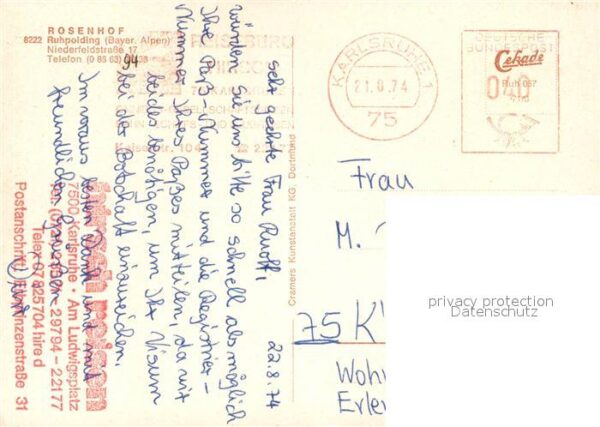 ROSENHOF
8222 Ruhpolding (Bayer. Alpen)
Niederfeldstraße 17
Telefon (0 86 63)
REISEBÜRO
KARLSRUHE 1
21.8.74
75
DEUTSCHE
BUNDESPOST
Cekade
040
22.8.74
Sehr geehrte Frau Ruoff,
würden Sie uns bitte so schnell als möglich
Ihre Paß Nummer und die Registrier-
Nummer Ihres Paßes mitteilen, da wir
beides benötigen, um Ihr Visum
bei der Botschaft einzureichen.
Im voraus besten Dank und mit
freundlichen Grüßen
7500 Karlsruhe · Am Ludwigsplatz
29794 - 22177
Telex 07 825704 hire d
Postanschrift: Erbprinzenstraße 31
Cramers Kunstanstalt KG, Dortmund
Frau
M.
75 K
Wohn
Erle
privacy protection
Datenschutz